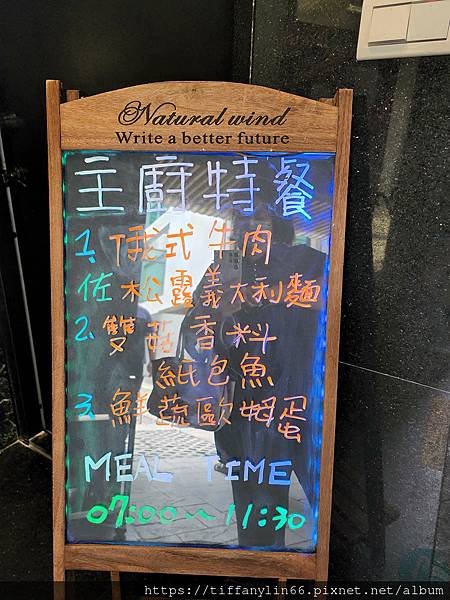 Natural wind
Write a better future
主廚特餐
1、俄式牛肉
佐松露義大利麵
2、雙菇香料
紙包魚
3、鮮蔬歐姆蛋
MEAL TIME
07:00~11:30
https://tiffanylin66.pixnet.net/album